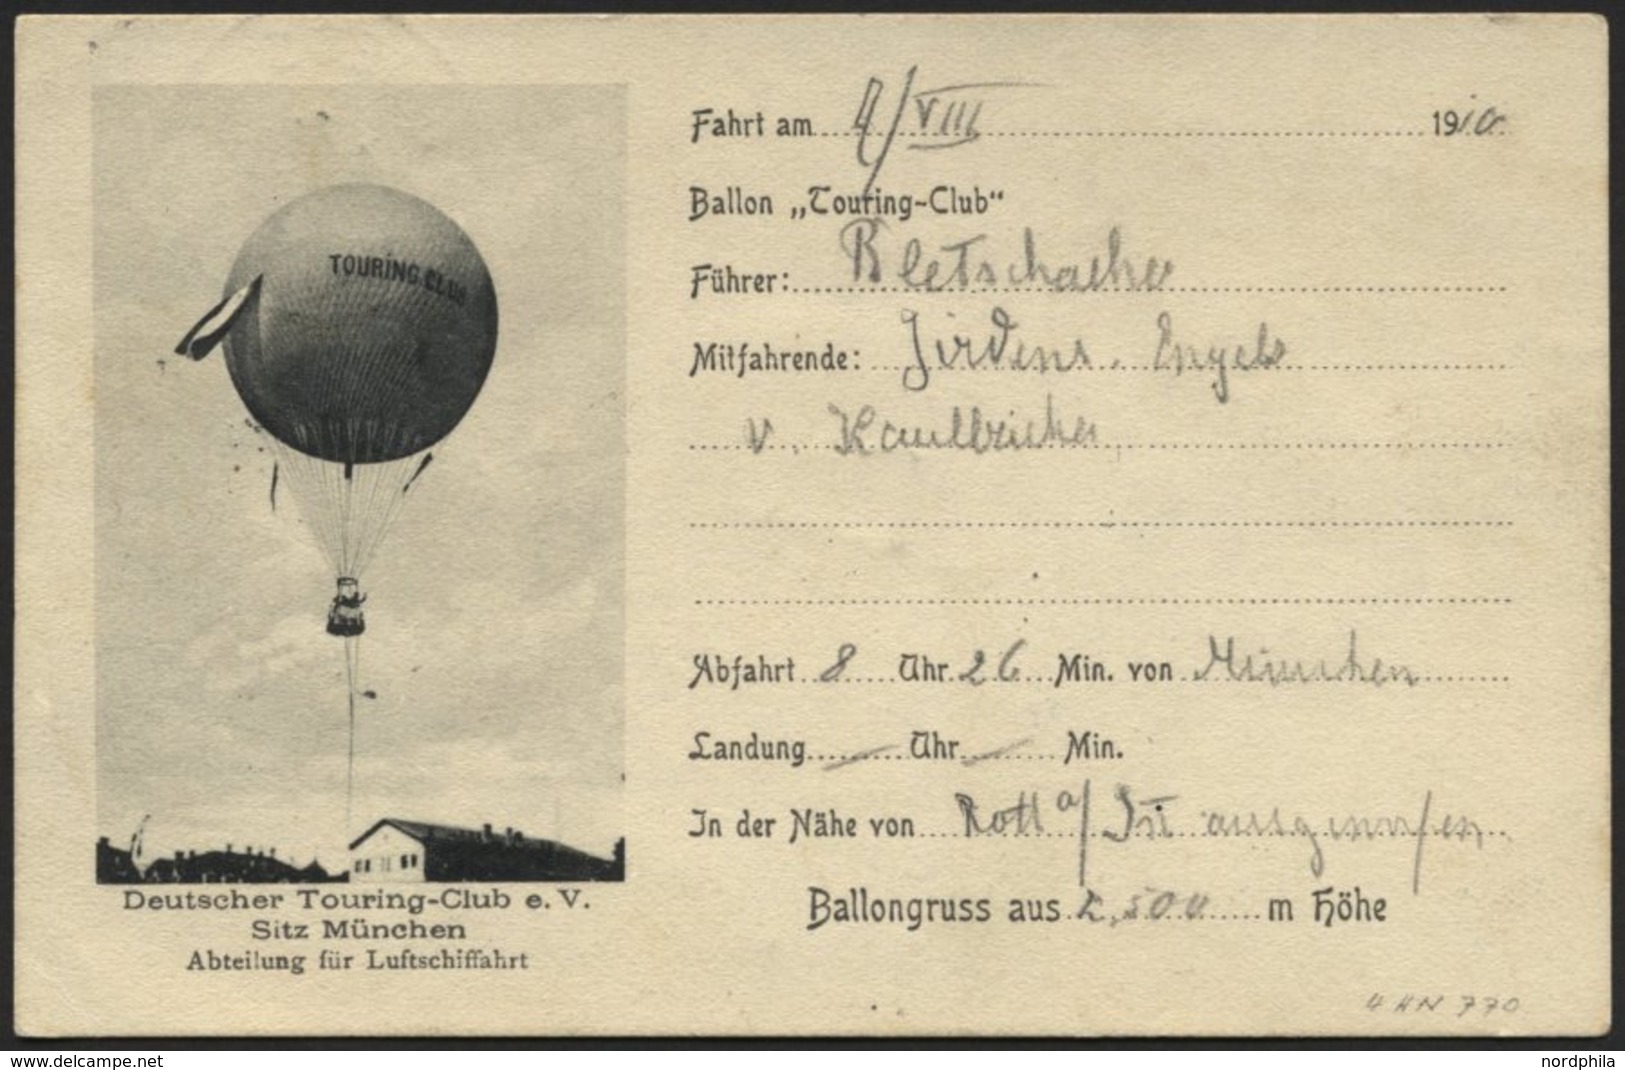 TOURING CLUB
Fahrt am 4/VIII 1910
Ballon „Touring-Club“
Führer: Bletschacher
Mitfahrende: Jirdens. Engels
v. Kaulbricher
Abfahrt 8 Uhr 26 Min. von München
Landung — Uhr — Min.
In der Nähe von Rott a/Inn ausgeworfen
Ballongruss aus 2,500 m Höhe
Deutscher Touring-Club e. V.
Sitz München
Abteilung für Luftschiffahrt
4 HN 770
www.delcampe.net
nordphila